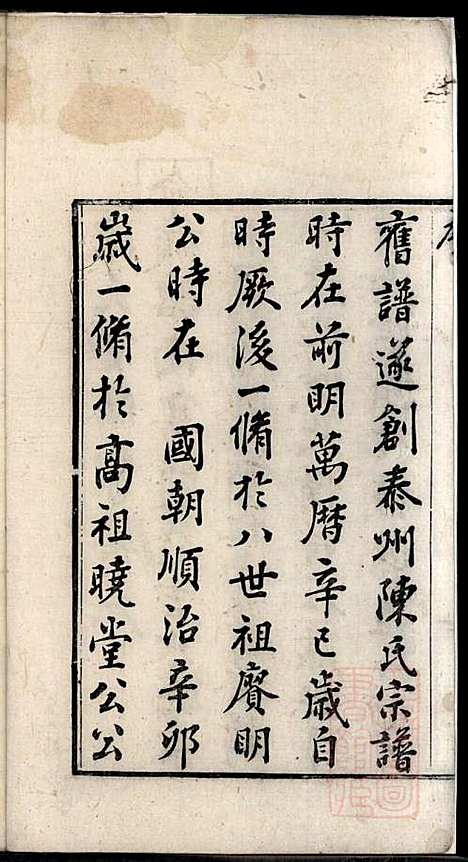 舊譜遂創泰州陳氏宗譜
時在前明萬曆辛巳歲自
時厥後一脩於八世祖賡明
公時在　國朝順治辛卯
歲一脩於高祖曉堂公公